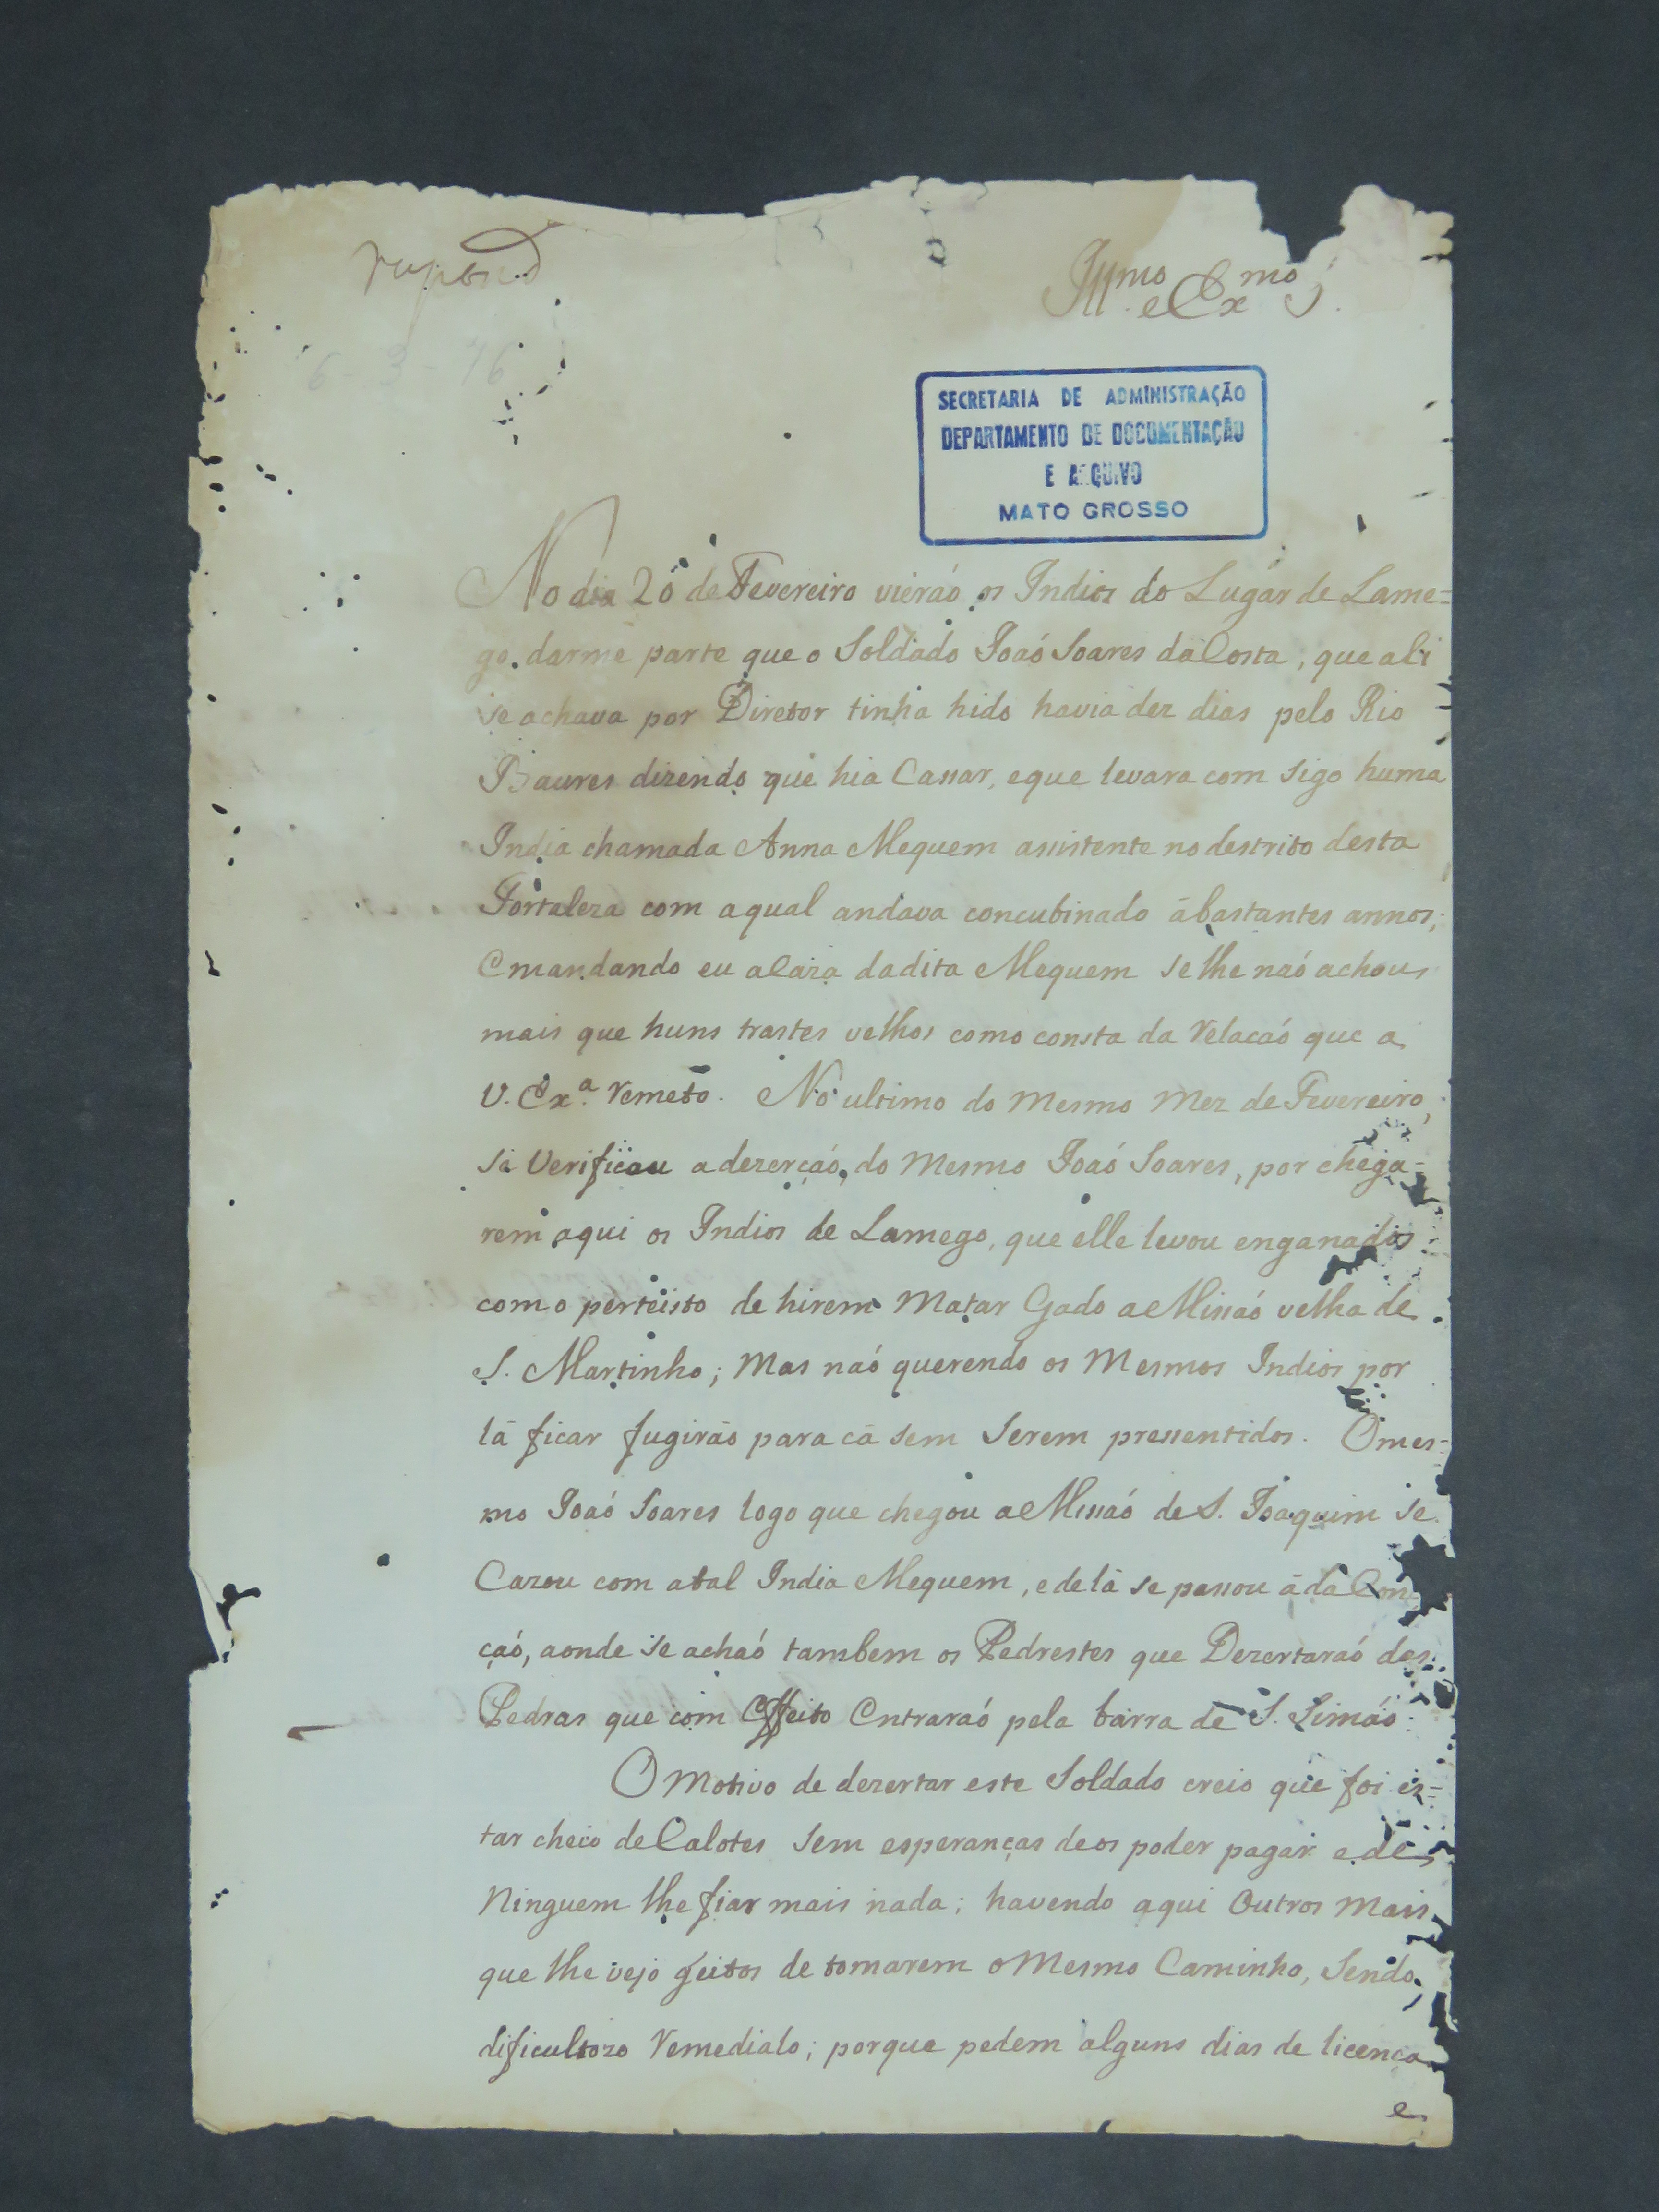 Illmo. e Exmo. S.
6-3-76
SECRETARIA DE ADMINISTRAÇÃO
DEPARTAMENTO DE DOCUMENTAÇÃO
E ARQUIVO
MATO GROSSO
No dia 20 de Fevereiro vieraó os Indios do Lugar de Lame=
go darme parte que o Soldado Joaó Soares da Costa, que ali
se achava por Diretor tinha hido havia dez dias pelo Rio
Baures dizendo que hia Cassar, e que levara com sigo huma
India chamada Anna Mequem assistente no destrito desta
Fortaleza com a qual andava concubinado á bastantes annos;
E mandando eu a Caza da dita Mequem se lhe naó achou
mais que huns trastes velhos como consta da Relacaó que a
V. Exa. Remeto. No ultimo do Mesmo Mez de Fevereiro
se Verificou a dezerçaó do Mesmo Joaó Soares, por chega=
rem aqui os Indios de Lamego, que elle levou enganados
com o perteisto de hirem Matar Gado a Missaó velha de
S. Martinho; Mas naó querendo os Mesmos Indios por
lá ficar fugiráo para cá sem Serem pressentidos. O mes=
mo Joaó Soares logo que chegou a Missaó de S. Joaquim se
Cazou com a tal India Mequem, e de lá se passou á da Con
çaó, aonde se achaó tambem os Pedrestes que Dezertaraó das
Pedras que com Effeito Entraraó pela barra de S. Simáo
O Motivo de dezertar este Soldado creio que foi es=
tar cheio de Calotes Sem esperanças de os poder pagar e de
Ninguem lhe fiar mais nada; havendo aqui Outros Mais
que lhe vejo geitos de tomarem o Mesmo Caminho, Sendo
dificultozo Remedialo; porque pedem alguns dias de licença
e